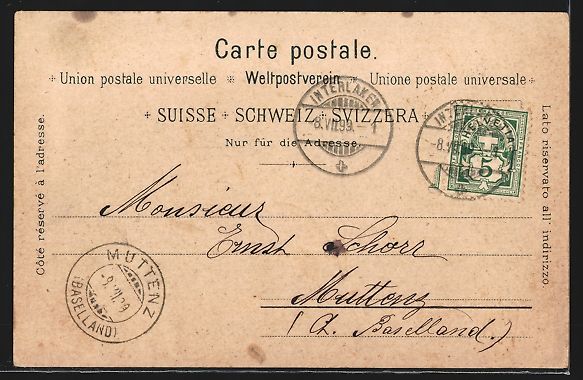 Carte postale.
Union postale universelle ✻ Weltpostverein ✻ Unione postale universale
SUISSE + SCHWEIZ + SVIZZERA
Nur für die Adresse.
INTERLAKEN
8.VII.99.
INTE
-8.VII
HELVETIA
5
Côté réservé à l'adresse.
Lato riservato all' indirizzo.
Monsieur
Ernst Schorr
Muttenz
(Ct. Baselland.)
MUTTENZ
(BASELLAND)